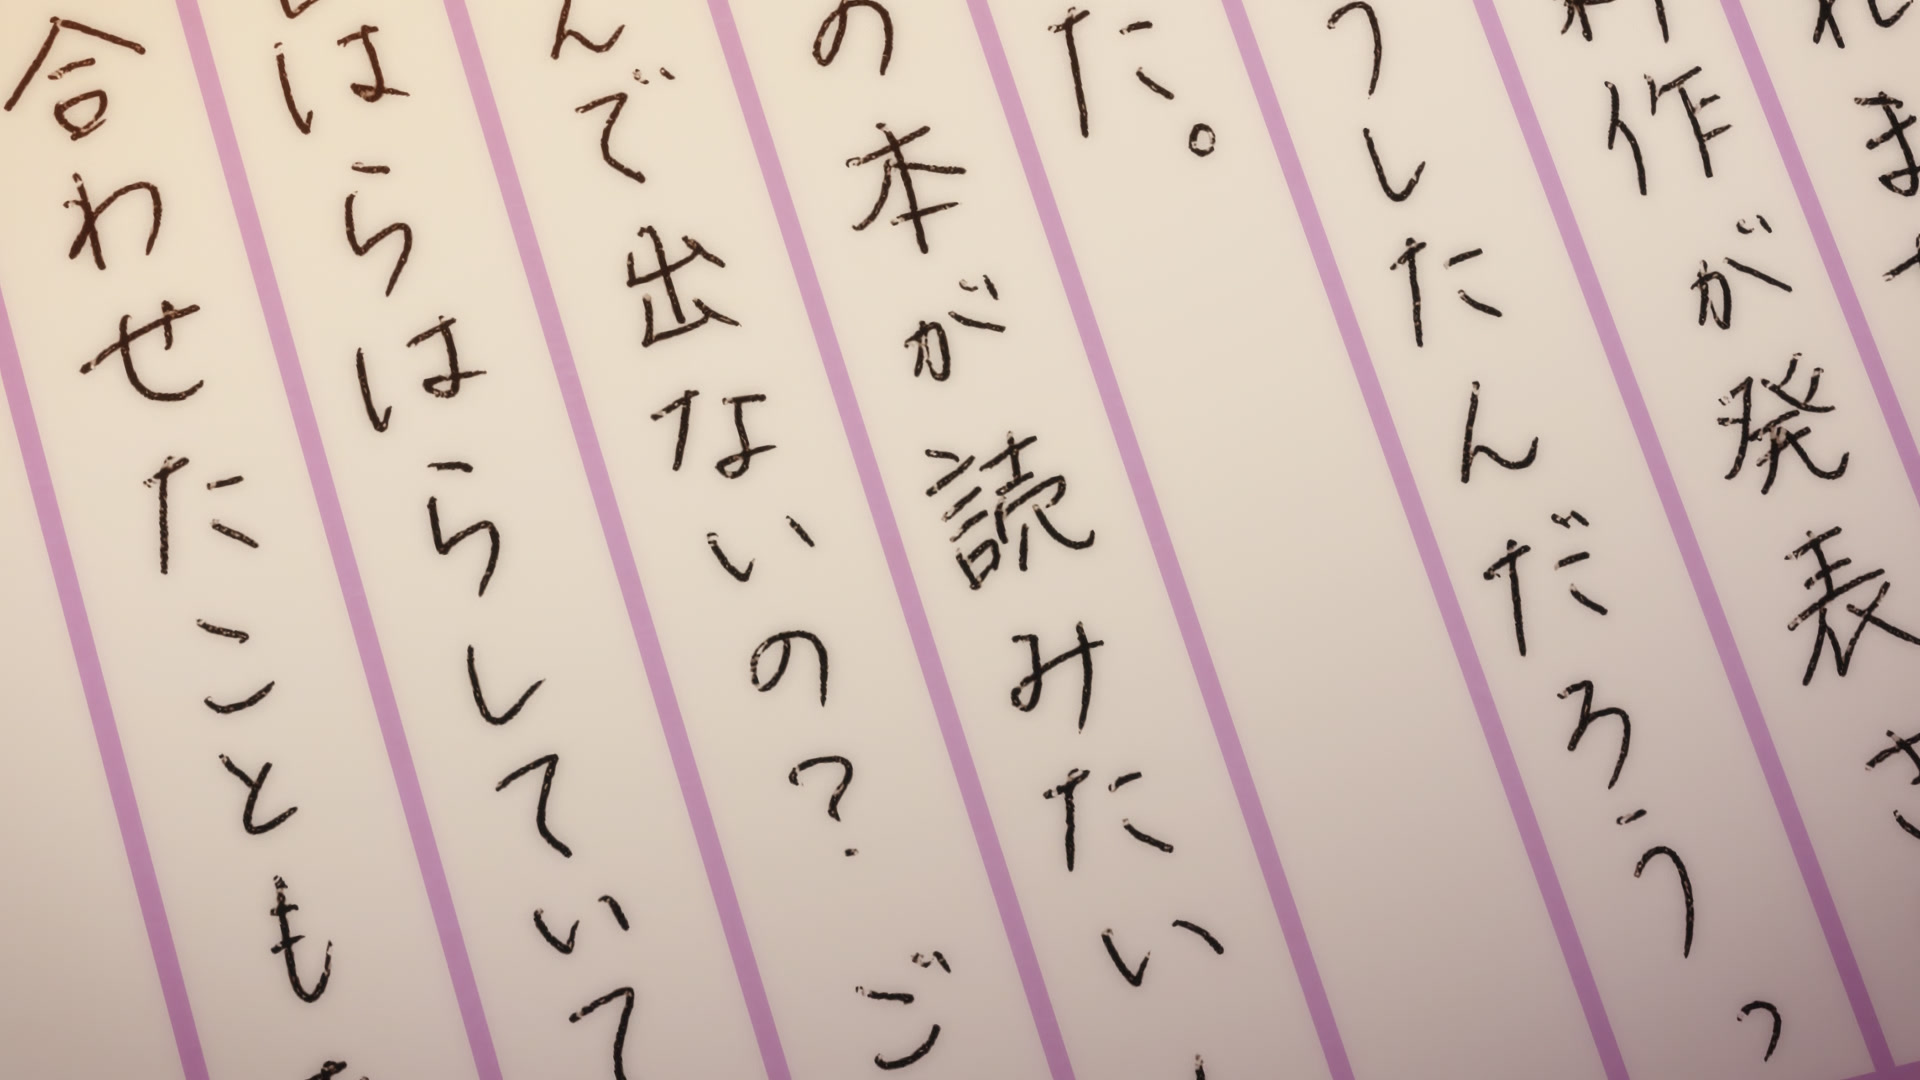 れま
作が発表さ
うしたんだろうっ
た。
の本が読みたい
んで出ないの?ご
はらはらしていて
合わせたことも